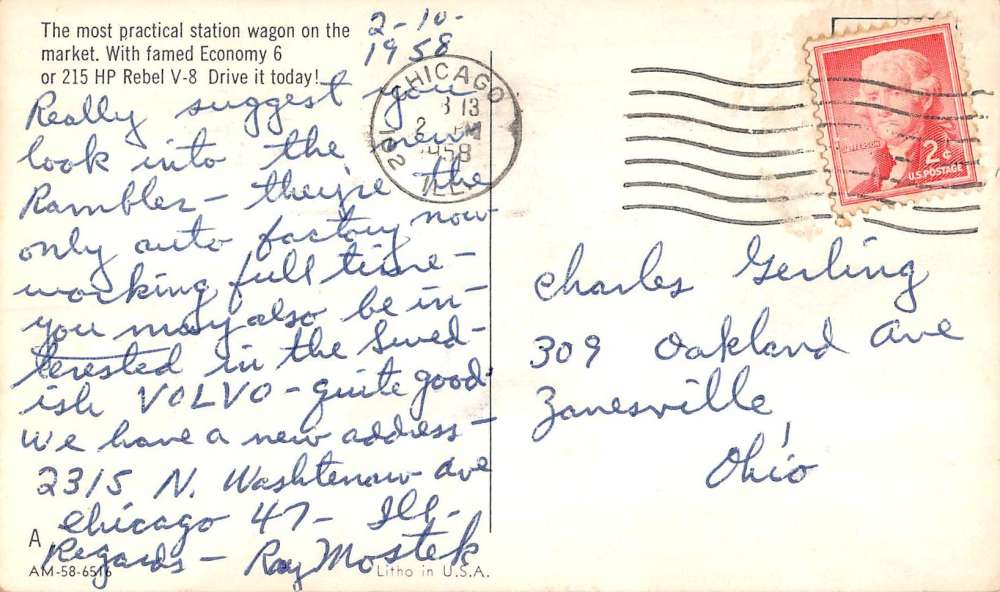 The most practical station wagon on the
market. With famed Economy 6
or 215 HP Rebel V-8 Drive it today!
2-10-
1958
Really suggest you
look into the new
Rambler - they're the
only auto factory now
working full time -
you may also be in-
terested in the Swed-
ish VOLVO - quite good
We have a new address -
2315 N. Washtenaw Ave
Chicago 47 - Ill -
Regards - Ray Mostek
A
AM-58-6516
Litho in U.S.A.
CHICAGO
13
2 PM
1958
ILL
JEFFERSON
2¢
U.S. POSTAGE
Charles Gerling
309 Oakland Ave
Zanesville,
Ohio